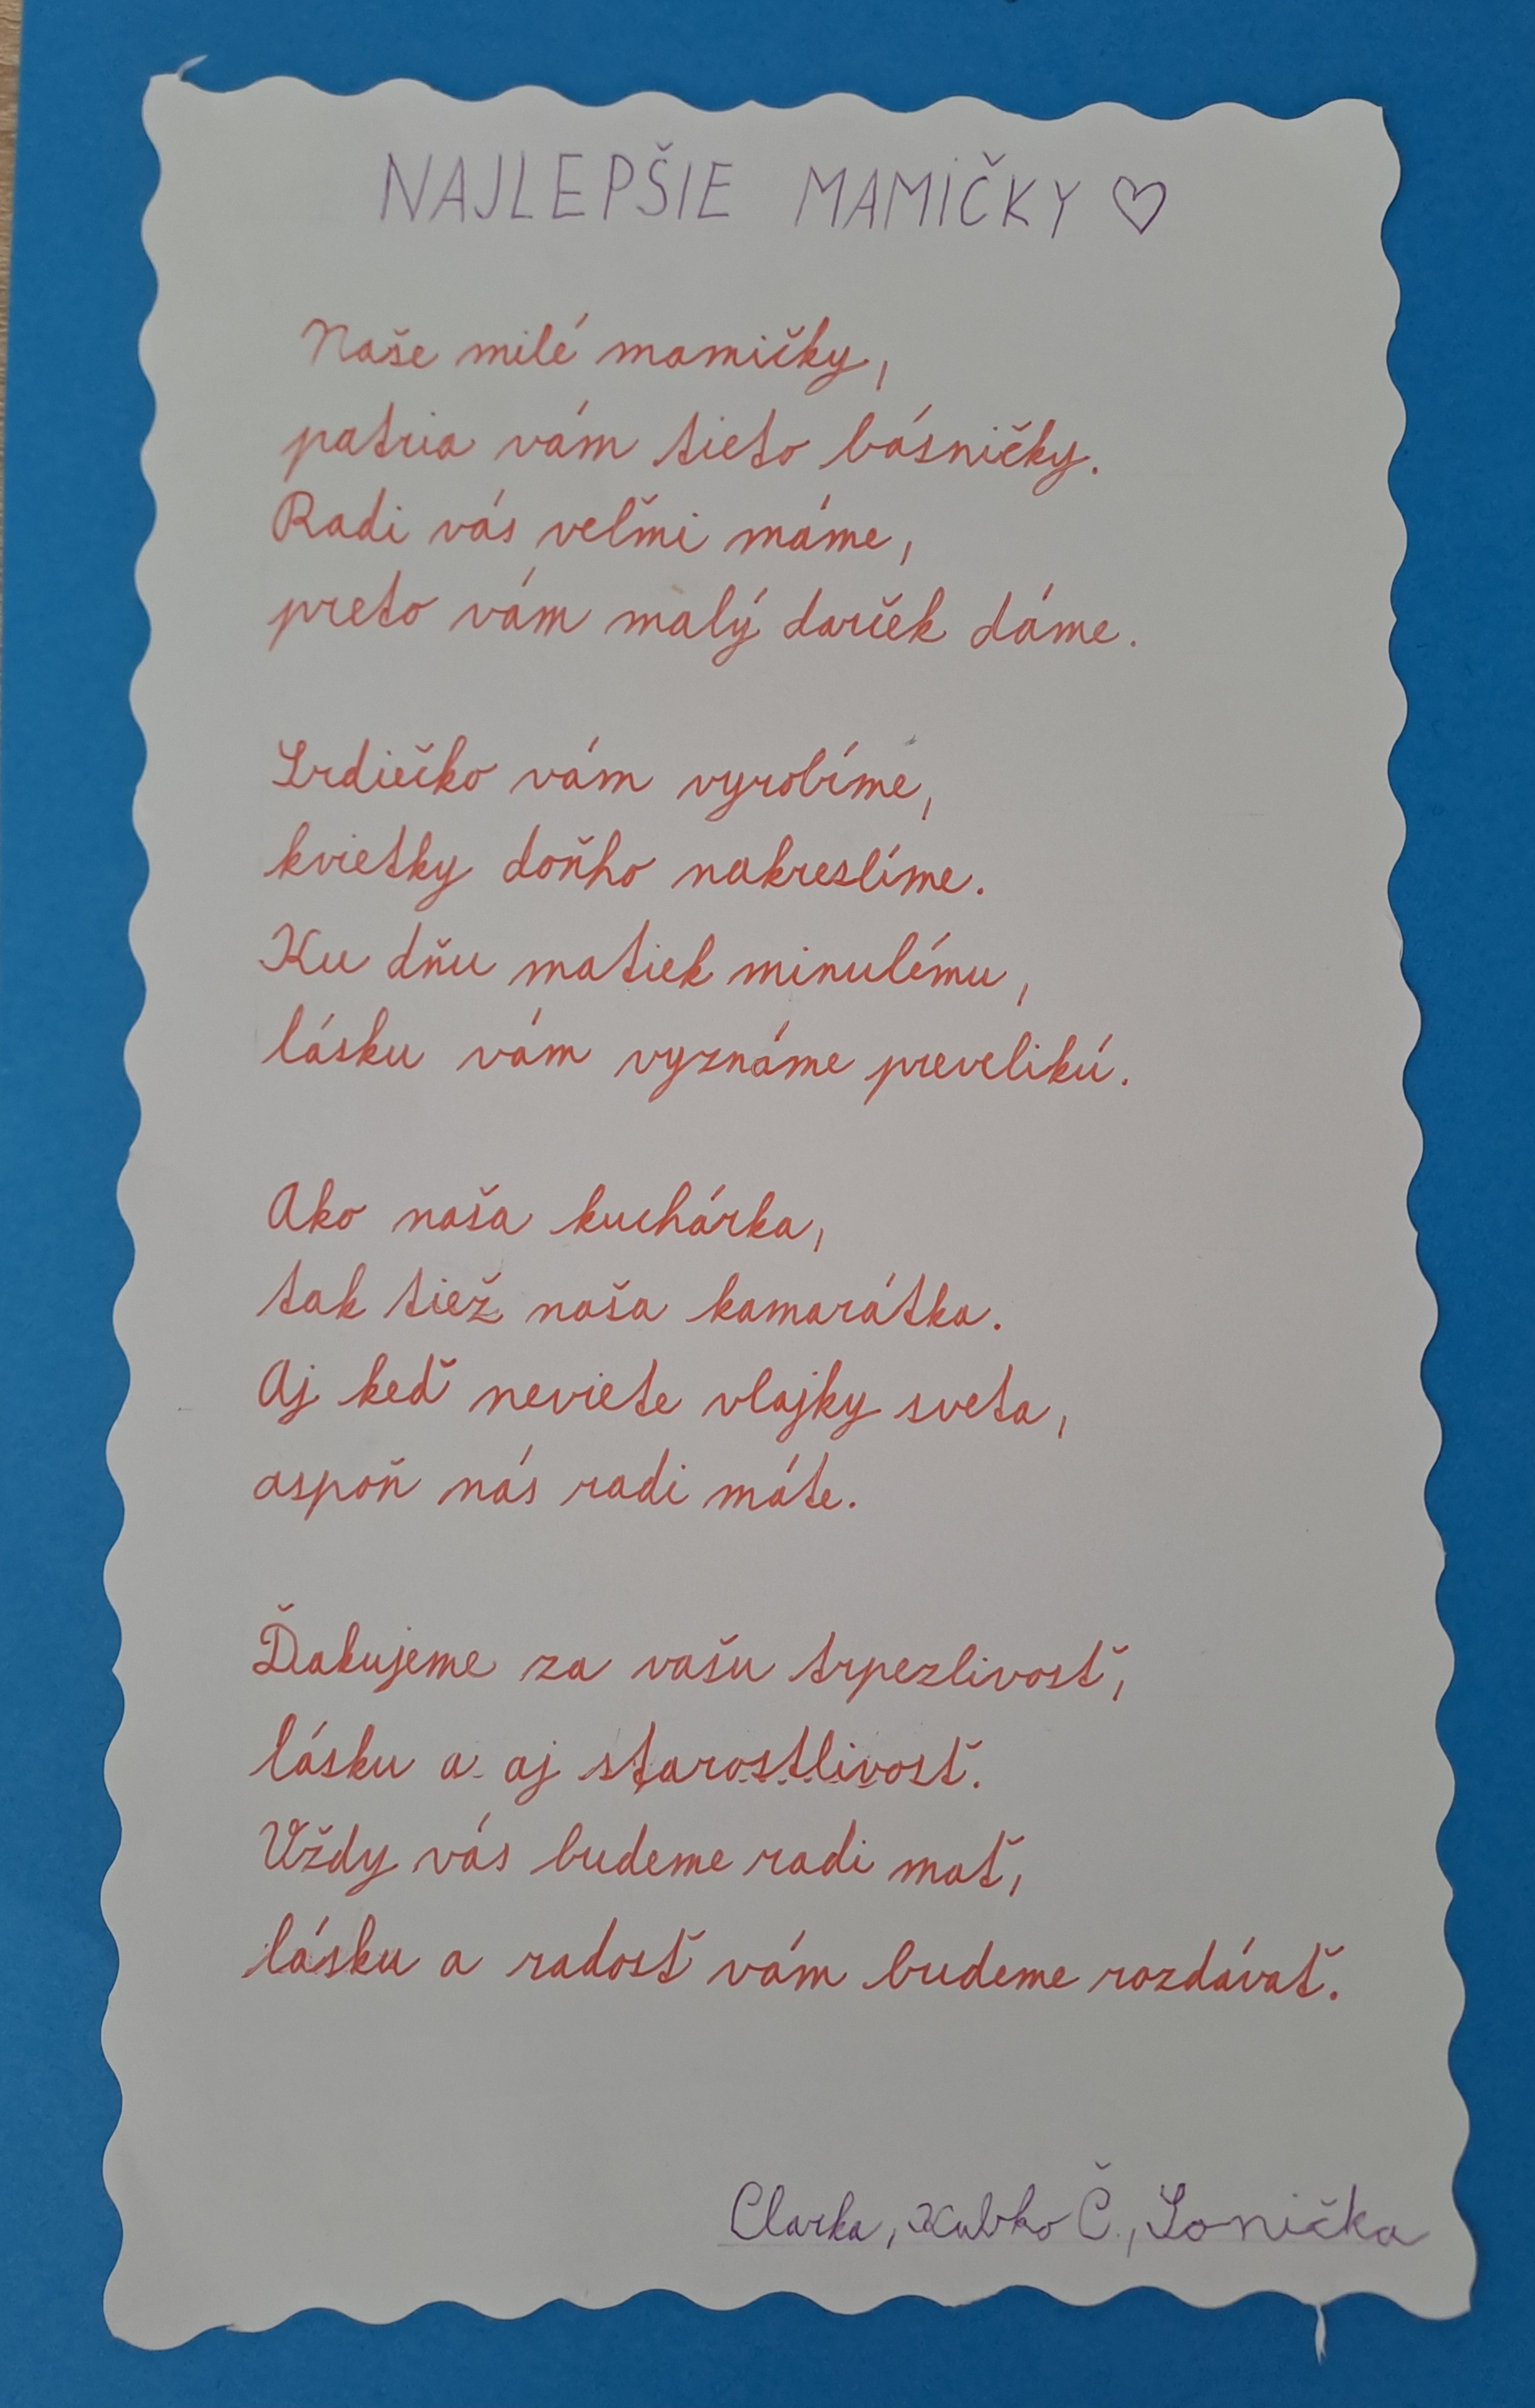 NAJLEPŠIE MAMIČKY ♡
Naše milé mamičky,
patria vám tieto básničky.
Radi vás veľmi máme,
preto vám malý darček dáme.
Srdiečko vám vyrobíme,
kvietky doňho nakreslíme.
Ku dňu matiek minulému,
lásku vám vyznáme prevelikú.
Ako naša kuchárka,
tak tiež naša kamarátka.
Aj keď neviete vlajky sveta,
aspoň nás radi máte.
Ďakujeme za vašu trpezlivosť,
lásku a aj starostlivosť.
Vždy vás budeme radi mať,
lásku a radosť vám budeme rozdávať.
Clarka, Kubko Č., Sonička